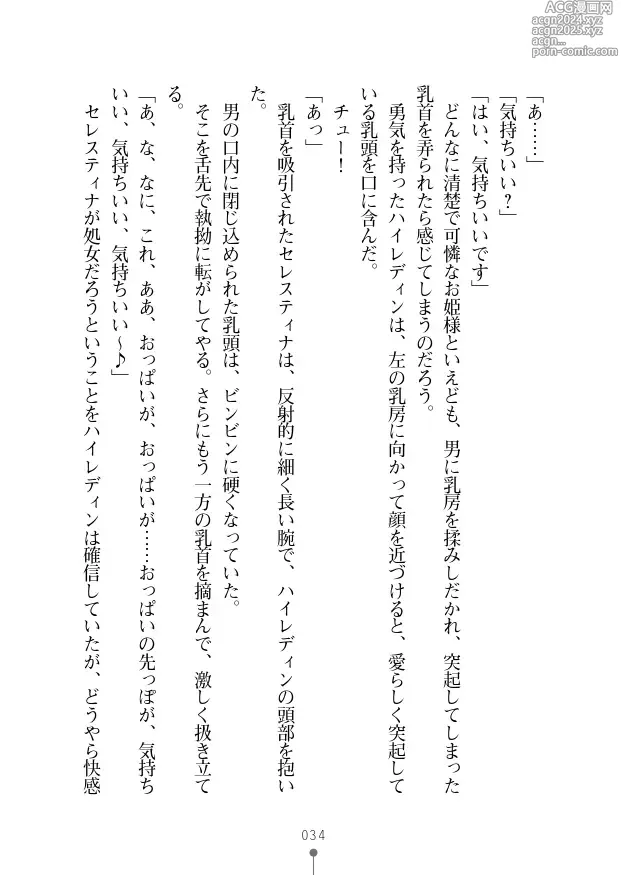 ACG漫画网
acgn2024.xyz
acgn2025.xyz
porn-comic.com
「あ……」
「気持ちいい？」
「はい、気持ちいいです」
どんなに清楚で可憐なお姫様といえども、男に乳房を揉みしだかれ、突起してしまった
乳首を弄られたら感じてしまうのだろう。
勇気を持ったハイレディンは、左の乳房に向かって顔を近づけると、愛らしく突起して
いる乳頭を口に含んだ。
チュー！
「あっ」
乳首を吸引されたセレスティナは、反射的に細く長い腕で、ハイレディンの頭部を抱い
た。
男の口内に閉じ込められた乳頭は、ビンビンに硬くなっていた。
そこを舌先で執拗に転がしてやる。さらにもう一方の乳首を摘まんで、激しく扱き立て
る。
「あ、な、なに、これ、ああ、おっぱいが、おっぱいが……おっぱいの先っぽが、気持ち
いい、気持ちいい、気持ちいい～♪」
セレスティナが処女だろうということをハイレディンは確信していたが、どうやら快感
034